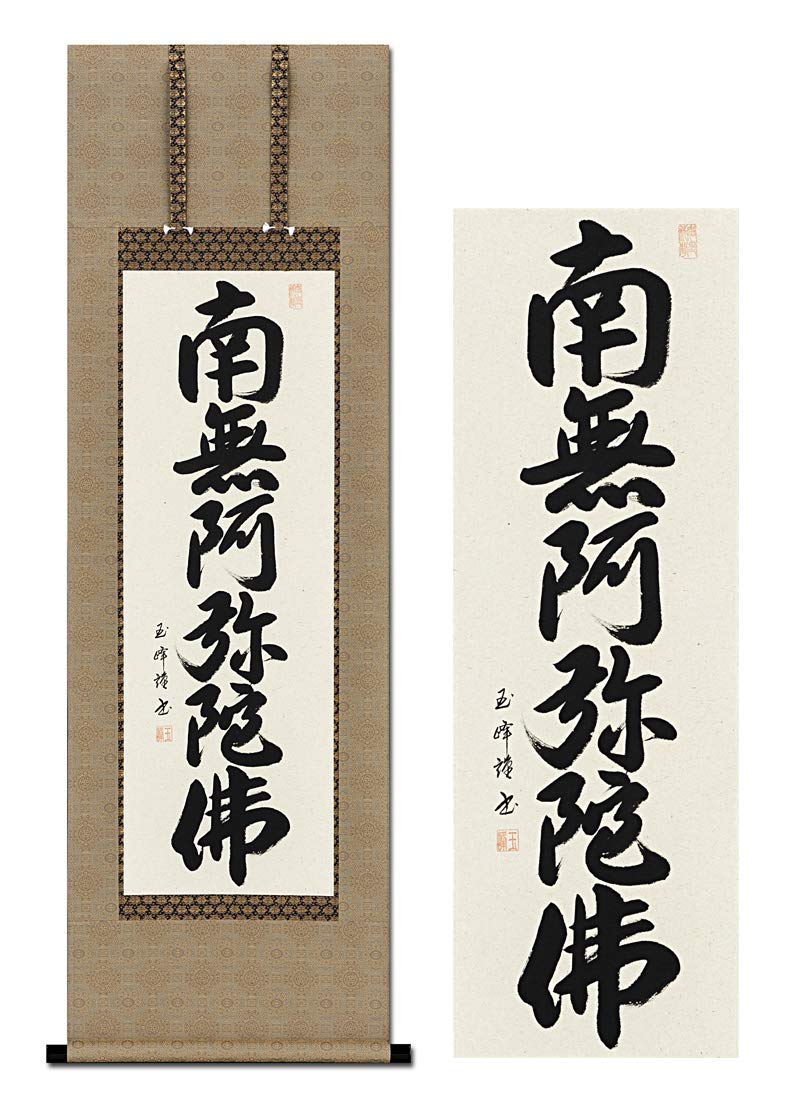 南無阿弥陀佛
玉峰謹書
南無阿弥陀佛
玉峰謹書